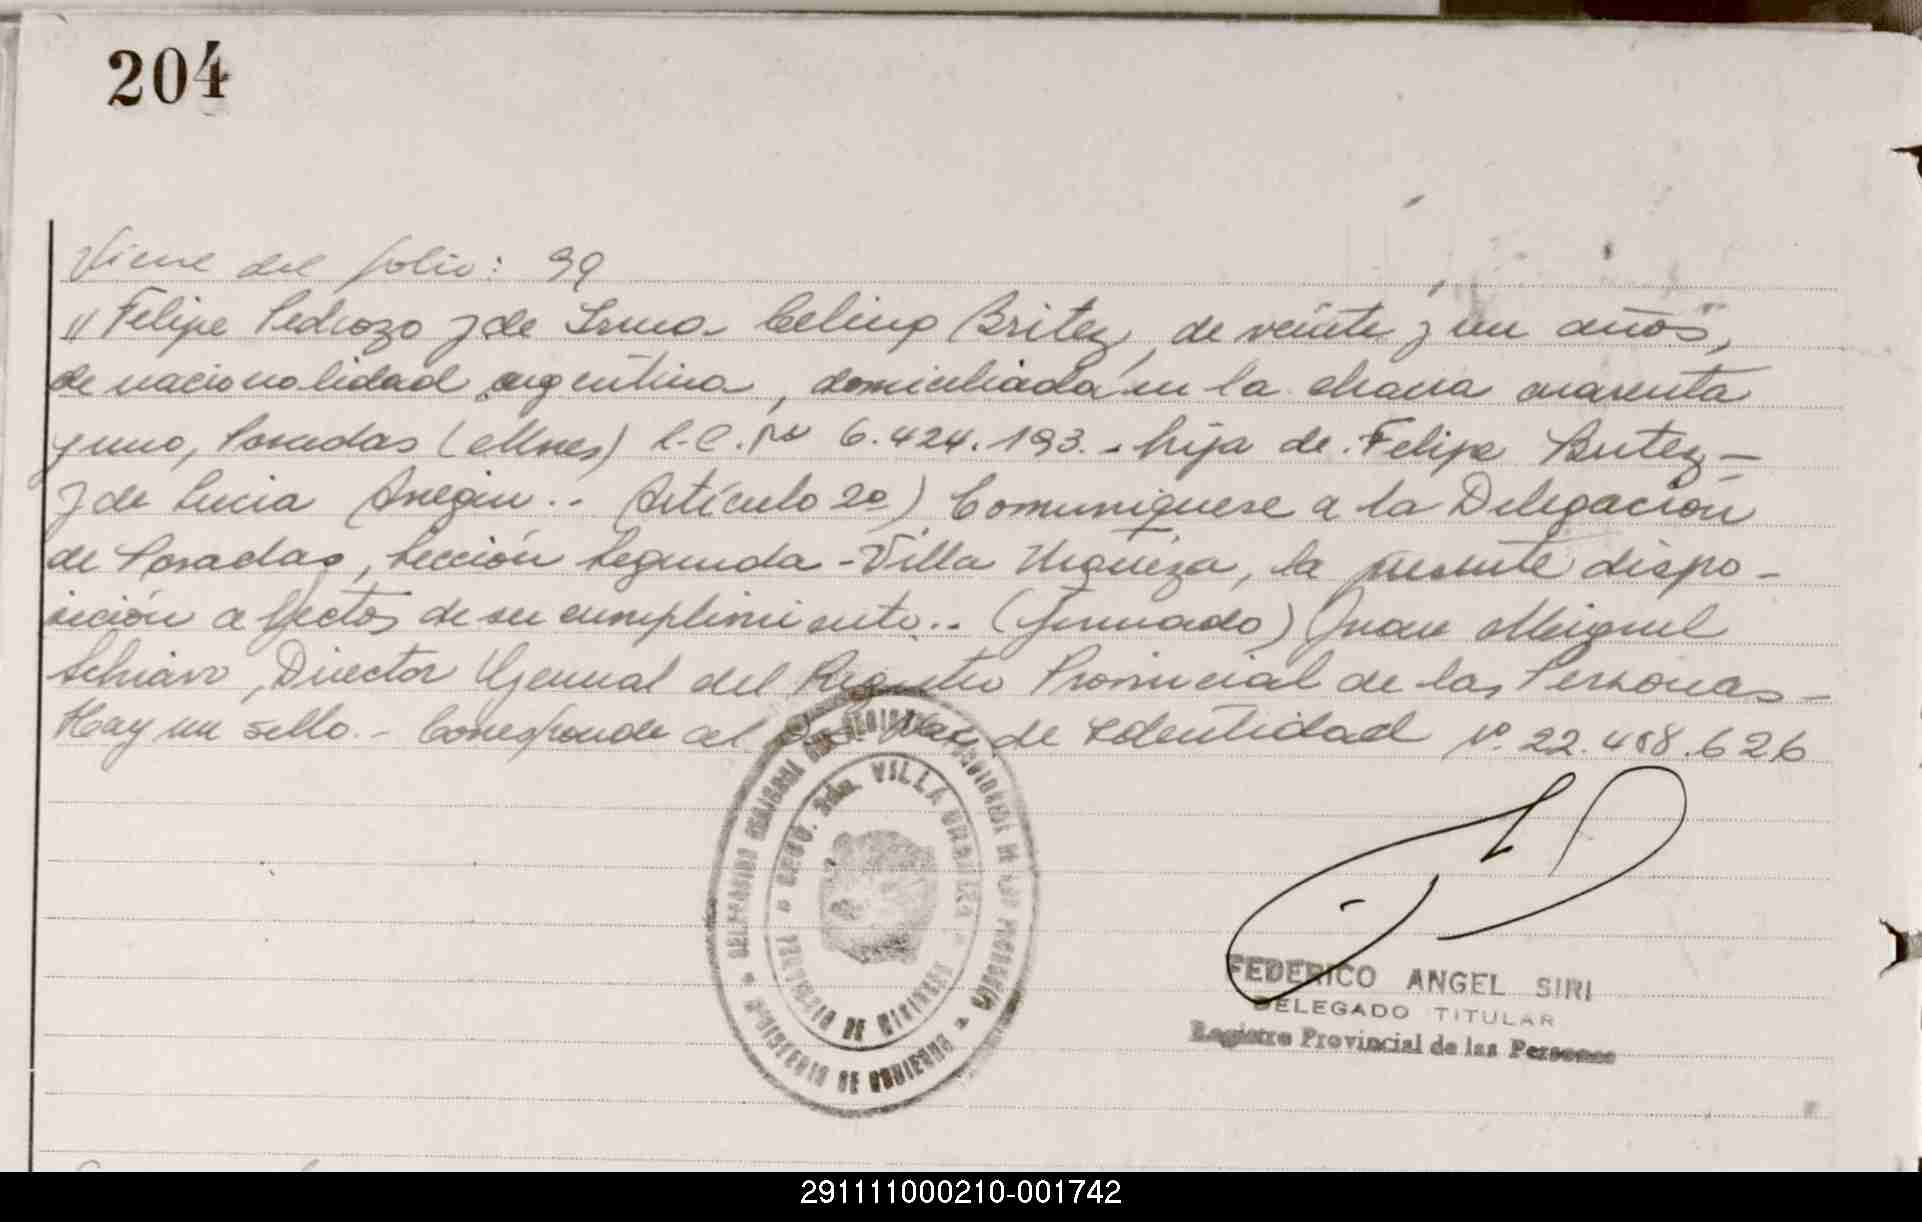 204
Viene del folio: 99
"Felipe Pedrozo y de Irma Celina Britez, de veinte y un años,
de nacionalidad argentina, domiciliada en la chacra cuarenta
y uno, Posadas (Mnes) L.C. Nº 6.424.193.- hija de Felipe Britez -
y de Lucia .- Artículo 2º) Comuníquese a la Delegación
de Posadas, Sección Segunda - Villa Urquiza, la presente dispo-
sición a efectos de su cumplimiento.. (firmado) Juan Miguel
Schiavo, Director General del Registro Provincial de las Personas -
Hay un sello.- Corresponde al de Identidad Nº. 22.488.626
DELEGACION REGISTRO DE LAS PERSONAS
MINISTERIO DE GOBIERNO
SECC. 2da. VILLA URQUIZA
PROVINCIA DE MISIONES
FEDERICO ANGEL SIRI
DELEGADO TITULAR
Registro Provincial de las Personas
291111000210-001742